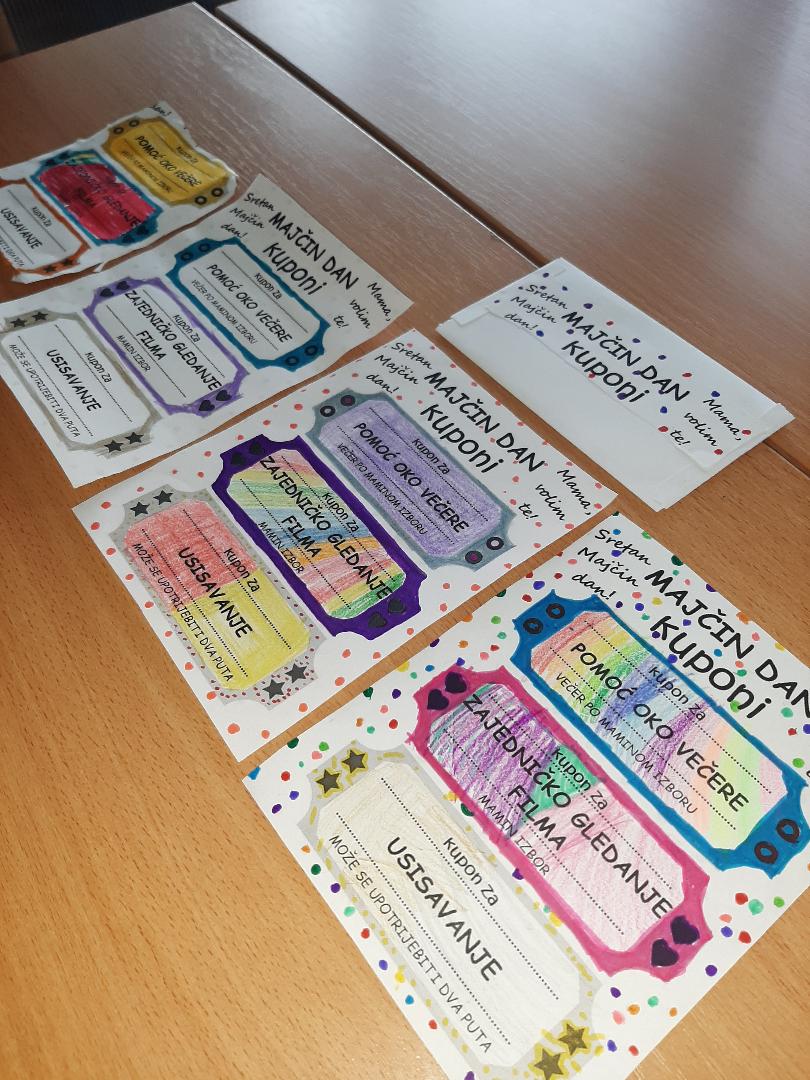 an!
kupon za
POMOĆ OKO VEČERE
VEČER PO MAMINOM IZBORU
GLEDANJE
FILMA
kupon za
USISAVANJE
Sretan
Majčin
dan!
MAJČIN DAN
kuponi
Mama,
volim
te!
kupon za
POMOĆ OKO VEČERE
VEČER PO MAMINOM IZBORU
kupon za
ZAJEDNIČKO GLEDANJE
FILMA
MAMIN IZBOR
kupon za
USISAVANJE
MOŽE SE UPOTRIJEBITI DVA PUTA
Sretan
Majčin
dan!
MAJČIN DAN
kuponi
Mama,
volim
te!
Sretan
Majčin
dan!
MAJČIN DAN
kuponi
Mama,
volim
te!
kupon za
POMOĆ OKO VEČERE
VEČER PO MAMINOM IZBORU
kupon za
ZAJEDNIČKO GLEDANJE
FILMA
MAMIN IZBOR
kupon za
USISAVANJE
MOŽE SE UPOTRIJEBITI DVA PUTA
Sretan
Majčin
dan!
MAJČIN DAN
kuponi
kupon za
POMOĆ OKO VEČERE
VEČER PO MAMINOM IZBORU
kupon za
ZAJEDNIČKO GLEDANJE
FILMA
MAMIN IZBOR
kupon za
USISAVANJE
MOŽE SE UPOTRIJEBITI DVA PUTA